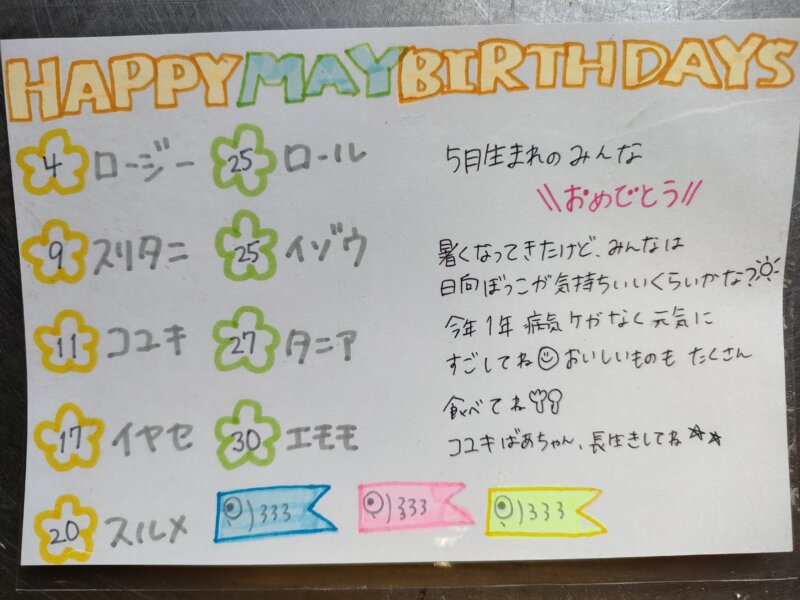 HAPPY MAY BIRTHDAYS
4 ロージー
9 スリタニ
11 コユキ
17 イヤセ
20 スルメ
25 ロール
25 イゾウ
27 タニア
30 エモモ
5月生まれのみんな
\\おめでとう//
暑くなってきたけど、みんなは
日向ぼっこが気持ちいいくらいかな?
今年1年病気ケガなく元気に
すごしてね おいしいものも たくさん
食べてね
コユキばあちゃん、長生きしてね